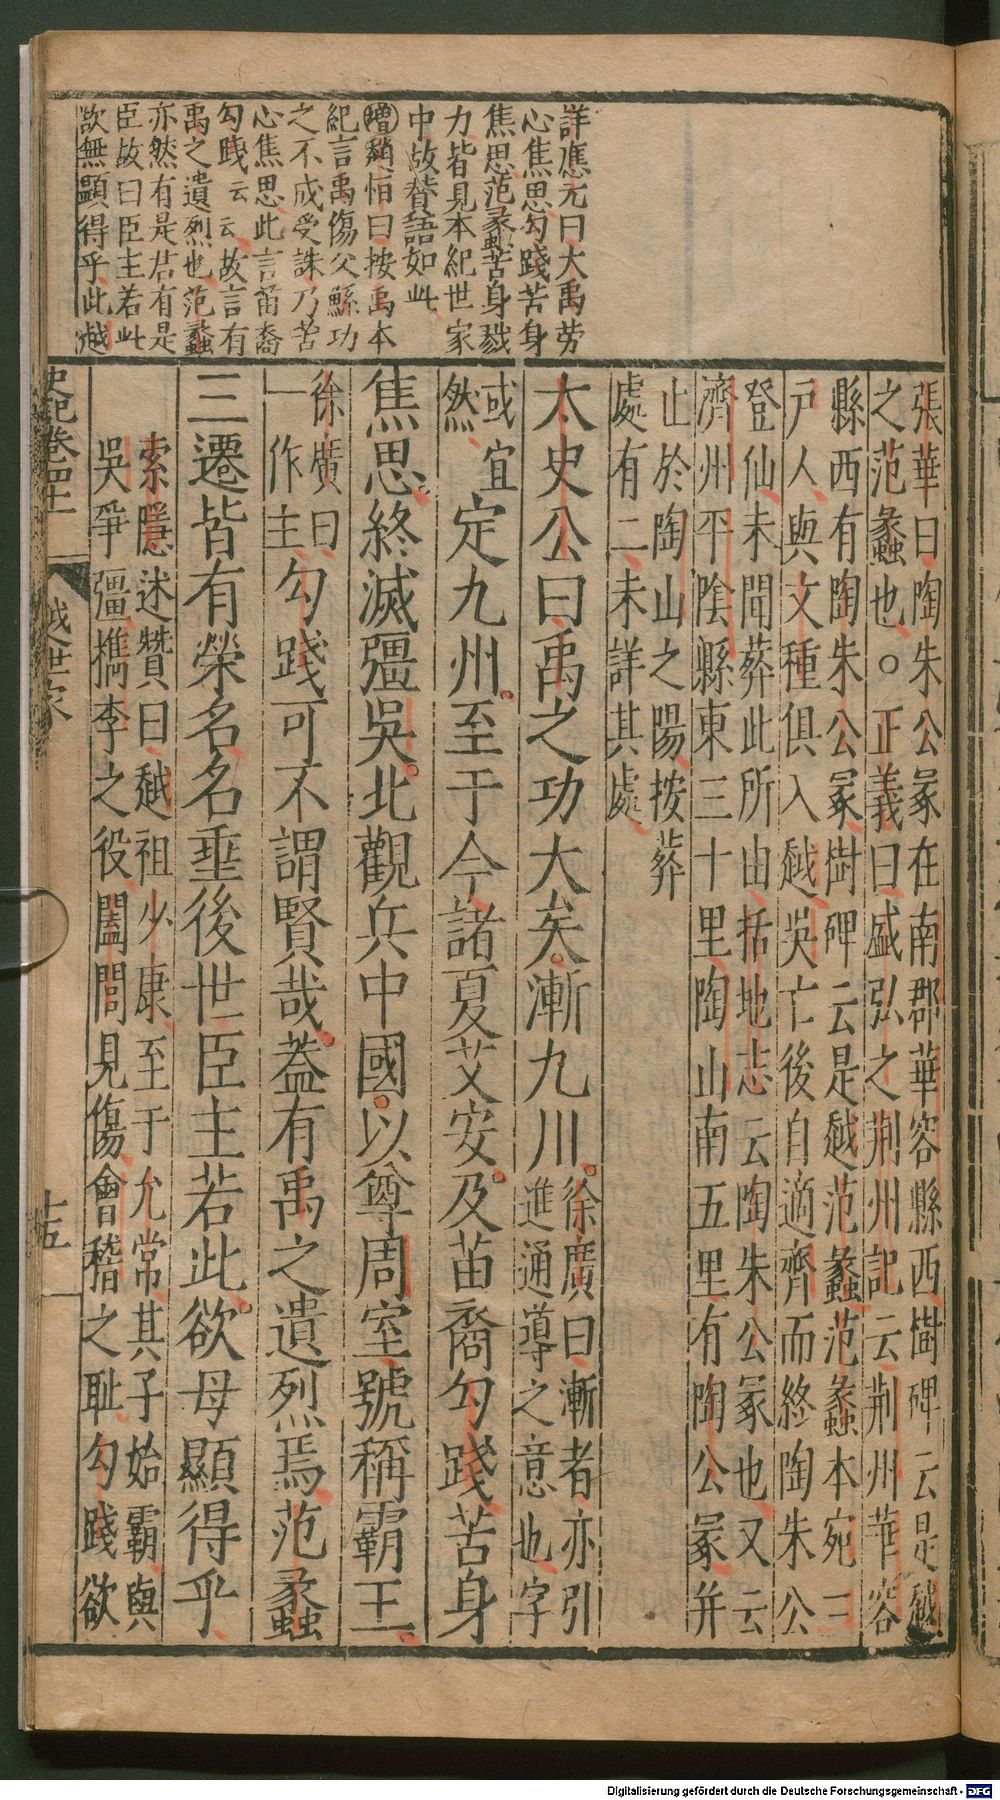 詳應元曰大禹勞
心焦思勾踐苦身
焦思范蠡苦身戮
力皆見本紀世家
中故贊語如此
增稍恒曰按禹本
紀言禹傷父鯀功
之不成受誅乃苦
心焦思此言苗裔
勾踐云云故言有
禹之遺烈也范蠡
亦然有是君有是
臣故曰臣主若此
欲無顯得乎此越
張華曰陶朱公冢在南郡華容縣西樹碑云是越
之范蠡也○正義曰盛弘之荊州記云荊州華容
縣西有陶朱公冢樹碑云是越范蠡范蠡本宛三
戶人與文種俱入越吳亡後自適齊而終陶朱公
登仙未聞葬此所由括地志云陶朱公冢也又云
濟州平陰縣東三十里陶山南五里有陶公冢并
止於陶山之陽按葬
處有二未詳其處
太史公曰禹之功大矣漸九川徐廣曰漸者亦引
進通導之意也字
或宜
然定九州至于今諸夏艾安及苗裔勾踐苦身
焦思終滅彊吳北觀兵中國以尊周室號稱霸王
徐廣曰
一作主勾踐可不謂賢哉蓋有禹之遺烈焉范蠡
三遷皆有榮名名垂後世臣主若此欲母顯得乎
索隱述贊曰越祖少康至于允常其子始霸與
吳爭彊檇李之役闔閭見傷會稽之恥勾踐欲
史記卷四十一
越世家
十五
Digitalisierung gefördert durch die Deutsche Forschungsgemeinschaft - DFG